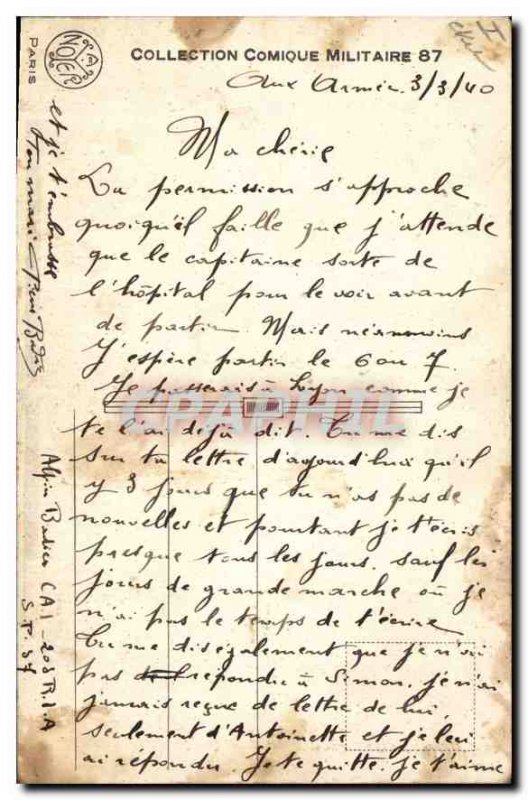 COLLECTION COMIQUE MILITAIRE 87
NOYER
PARIS
Aux Armées 3/3/40
Ma chérie
La permission s'approche
quoiqu'il faille que j'attende
que le capitaine sorte de
l'hôpital pour le voir avant
de partir. Mais néanmoins
J'espère partir le 6 ou 7.
Je passerais à Lyon comme je
te l'ai dejà dit. Tu me dis
sur ta lettre d'aujourd'hui qu'il
y 3 jours que tu n'as pas de
nouvelles et pourtant je t'écris
presque tous les jours. sauf les
jours de grande marche où je
n'ai pas le temps de t'écrire
Tu me dis également que je n'ai
pas repondu à Simon. je n'ai
jamais reçue de lettre de lui
seulement d'Antoinette et je lui
ai répondu. Je te quitte. je t'aime
et je t'embrasse
Ton mari
CA1 - 203 R.I.A
S.P. 57
CPAPHIL